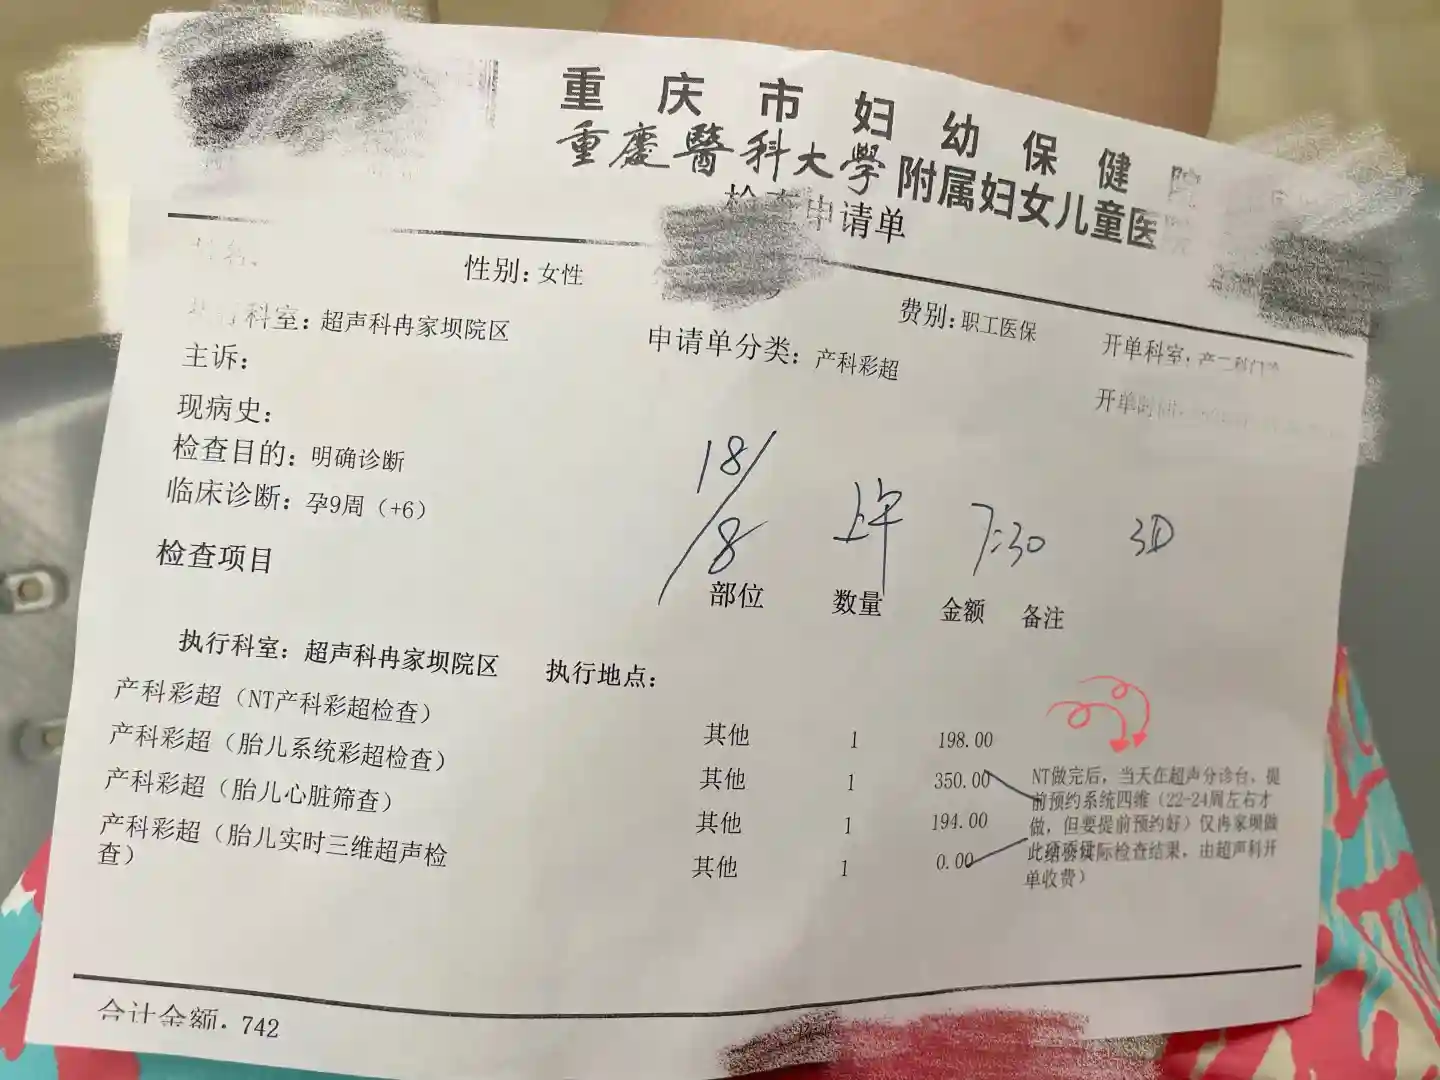 重庆市妇幼保健院
重慶醫科大學附属妇女儿童医院
检查申请单
性别：女性
费别：职工医保
执行科室：超声科冉家坝院区
申请单分类：产科彩超
开单科室：产二科门诊
主诉：
开单时间：
现病史：
检查目的：明确诊断
临床诊断：孕9周（+6）
18/8 上午 7:30 3D
检查项目 部位 数量 金额 备注
执行科室：超声科冉家坝院区 执行地点：
产科彩超（NT产科彩超检查） 其他 1 198.00
产科彩超（胎儿系统彩超检查） 其他 1 350.00
产科彩超（胎儿心脏筛查） 其他 1 194.00
产科彩超（胎儿实时三维超声检 其他 1 0.00
查）
NT做完后，当天在超声分诊台，提
前预约系统四维（22-24周左右才
做，但要提前预约好）仅冉家坝做
际检查结果，由超声科开
单收费）
合计金额：742